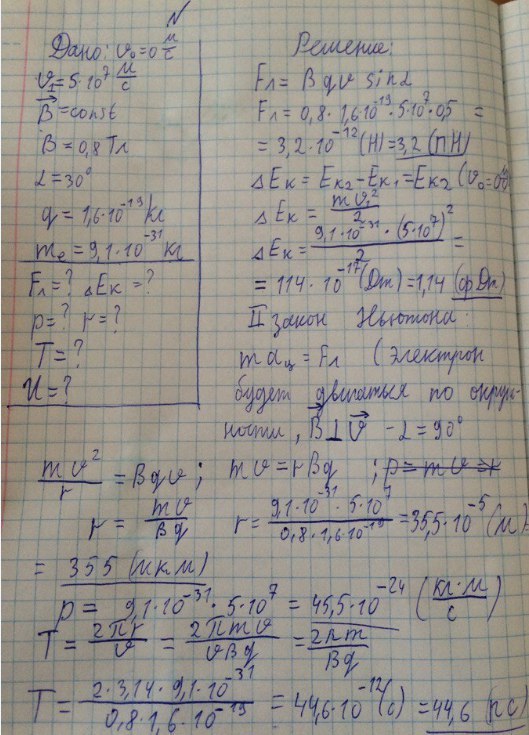 Дано: v₀=0 м/с
v₁=5·10⁷ м/с
B⃗=const
B=0,8 Тл
α=30°
q=1,6·10⁻¹⁹ кг
mₑ=9,1·10⁻³¹ кг
Fл=? ΔEк=?
p=? r=?
T=?
U=?
Решение:
Fл = Bqv sinα
Fл=0,8·1,6·10⁻¹⁹·5·10⁷·0,5 =
= 3,2·10⁻¹²(Н)=3,2(пН)
ΔEк = Eк₂-Eк₁=Eк₂(v₀=0 м/с)
ΔEк = mv₁²/2
ΔEк= 9,1·10⁻³¹·(5·10⁷)²/2 =
= 114·10⁻¹⁷(Дж)=1,14 (фДж)
II закон Ньютона:
maц = Fл (электрон
будет двигаться по окруж-
ности, B⃗⊥v⃗ - α=90°
mv²/r = Bqv; mv=rBq ; p=mv=r
r = mv/Bq r= 9,1·10⁻³¹·5·10⁷/0,8·1,6·10⁻¹⁹ =35,5·10⁻⁵(м)
= 355 (мкм)
p = 9,1·10⁻³¹·5·10⁷ = 45,5·10⁻²⁴ (кг·м/с)
T = 2πr/v = 2πmv/vBq = 2πm/Bq
T = 2·3,14·9,1·10⁻³¹/0,8·1,6·10⁻¹⁹ = 44,6·10⁻¹²(с) =44,6 (пс)